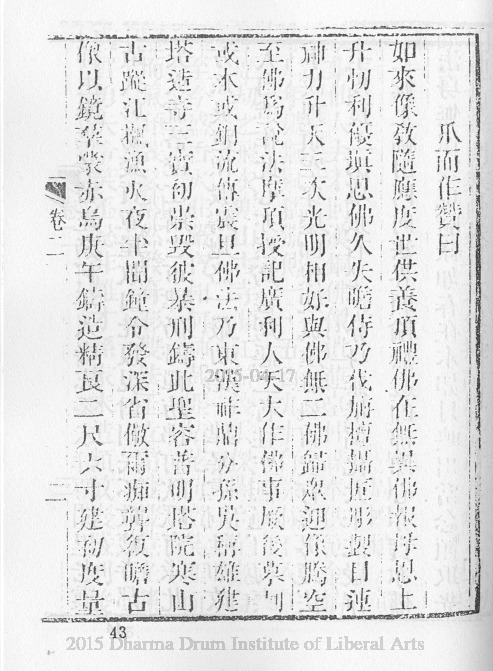 爪而作贊曰
如來像教隨應度世供養頂禮佛在無異佛報母恩上
升忉利優填思佛久失瞻侍乃伐旃檀攝匠彫製目連
神力升天三次光明相好與佛無二佛歸眾迎像騰空
至佛為說法摩頂授記廣利人天大作佛事厥後摹刻
或木或銅流傳震旦佛法乃東漢祚鼎分孫吳稱雄建
塔造寺三寶初崇毀彼暴刑鑄此聖容普明塔院寒山
古蹤江楓漁火夜半聞鐘令發深省儆爾痴聾復瞻古
像以鏡羣蒙赤烏庚午鑄造精良二尺六寸建初度量
卷二
二
43
2015-04-17
2015 Dharma Drum Institute of Liberal Arts